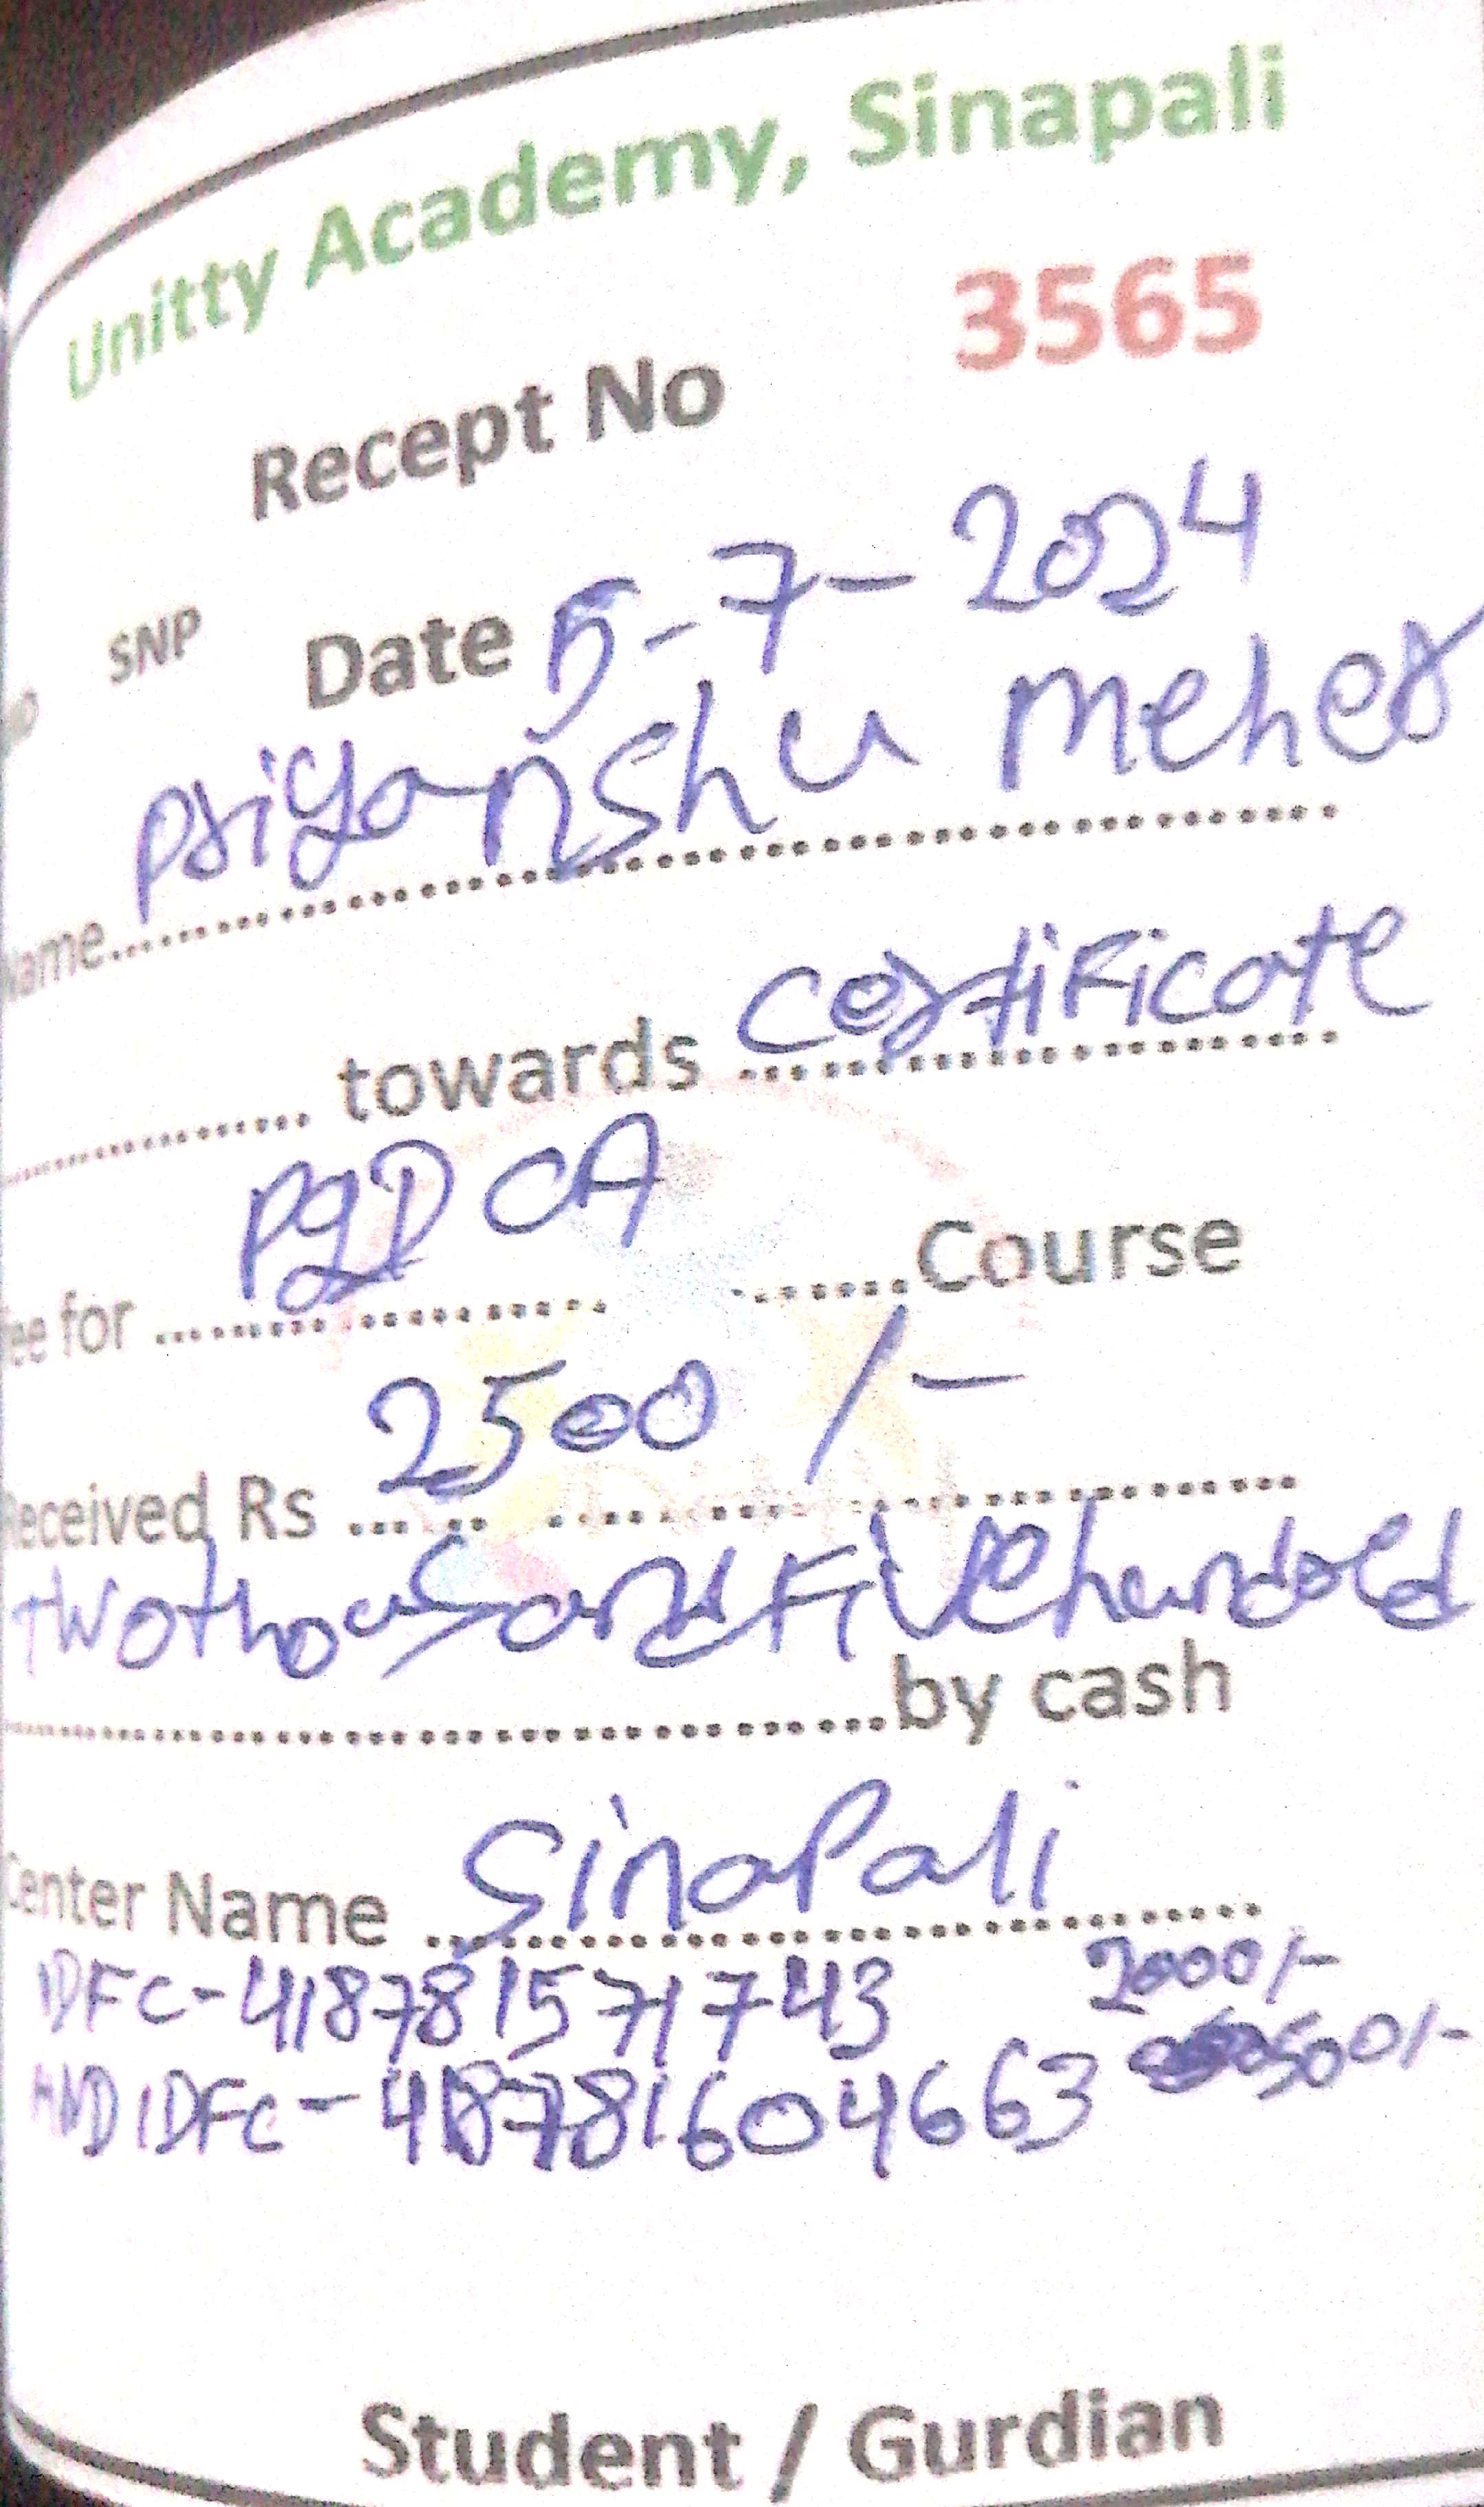 Unitty Academy, Sinapali
Recept No 3565
SNP Date 5-7-2024
Priyanshu meher
Name
towards certificate
PGDCA
ee for Course
2500/-
eceived Rs
twothousand Fivehundred
by cash
Center Name Sinapali
IDFC-418781571743 2000/-
IDFC-418781604663 500/-
Student / Gurdian